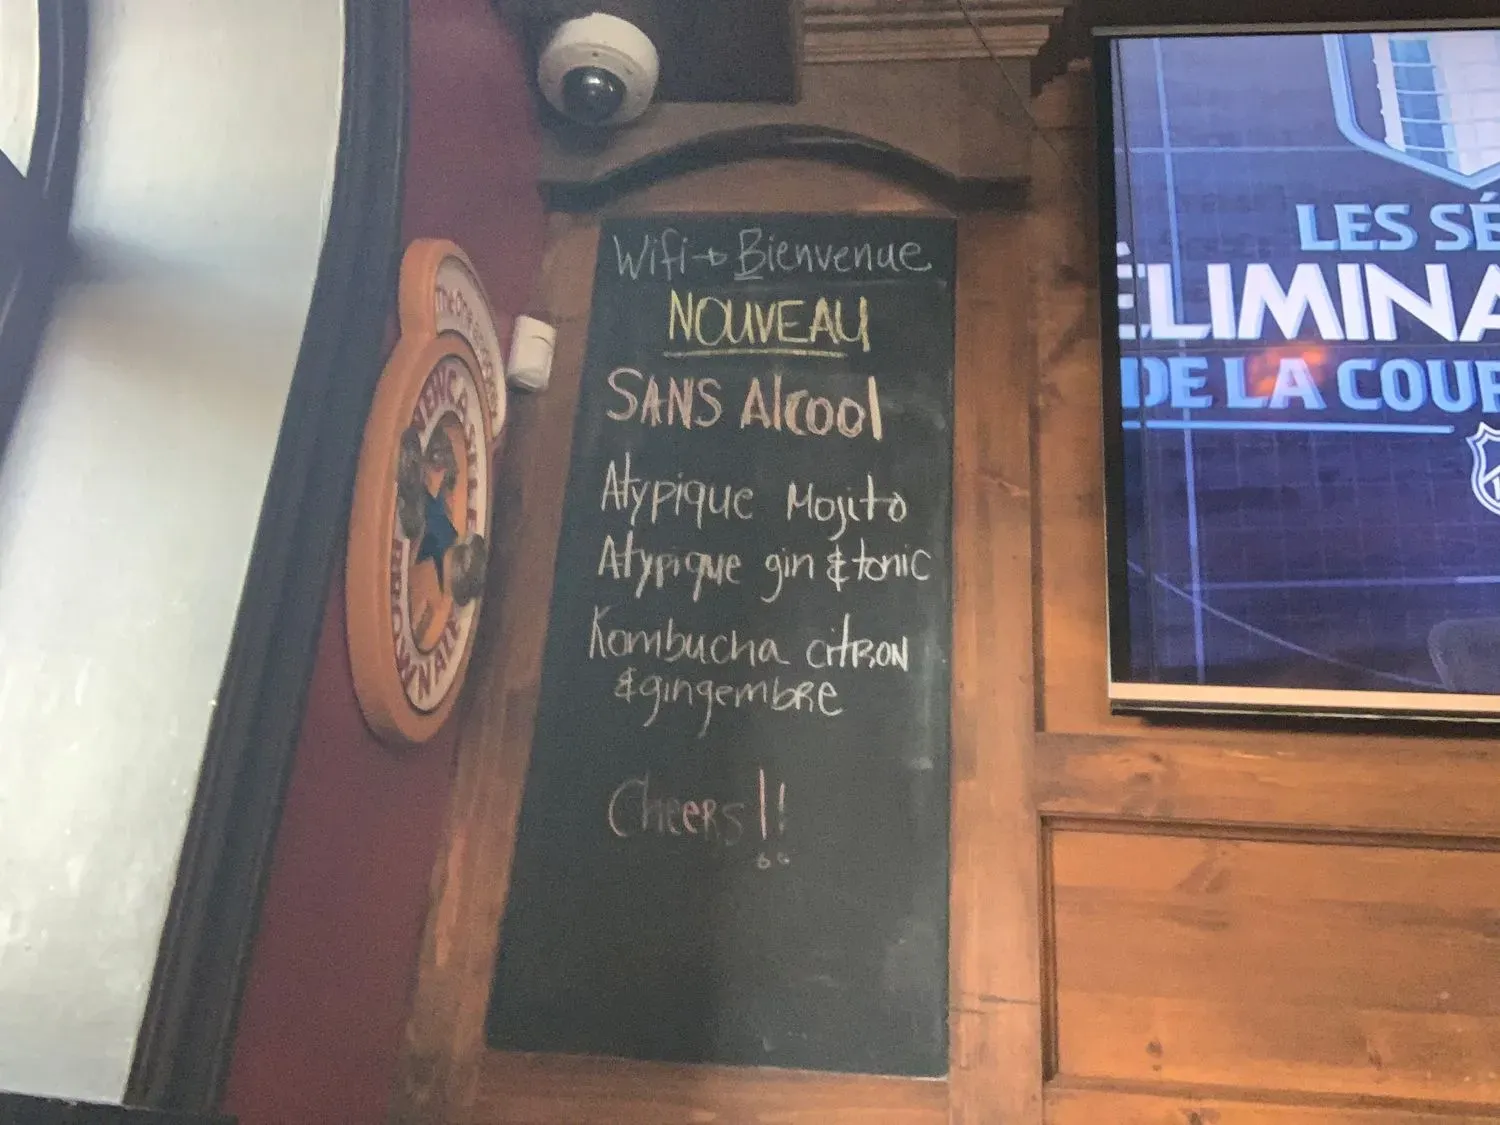 Wifi → Bienvenue
NOUVEAU
SANS Alcool
Atypique Mojito
Atypique gin & tonic
Kombucha citron
& gingembre
Cheers!!
The One
NEWCASTLE
BROWN ALE
LES SÉ
ÉLIMINA
DE LA COUP